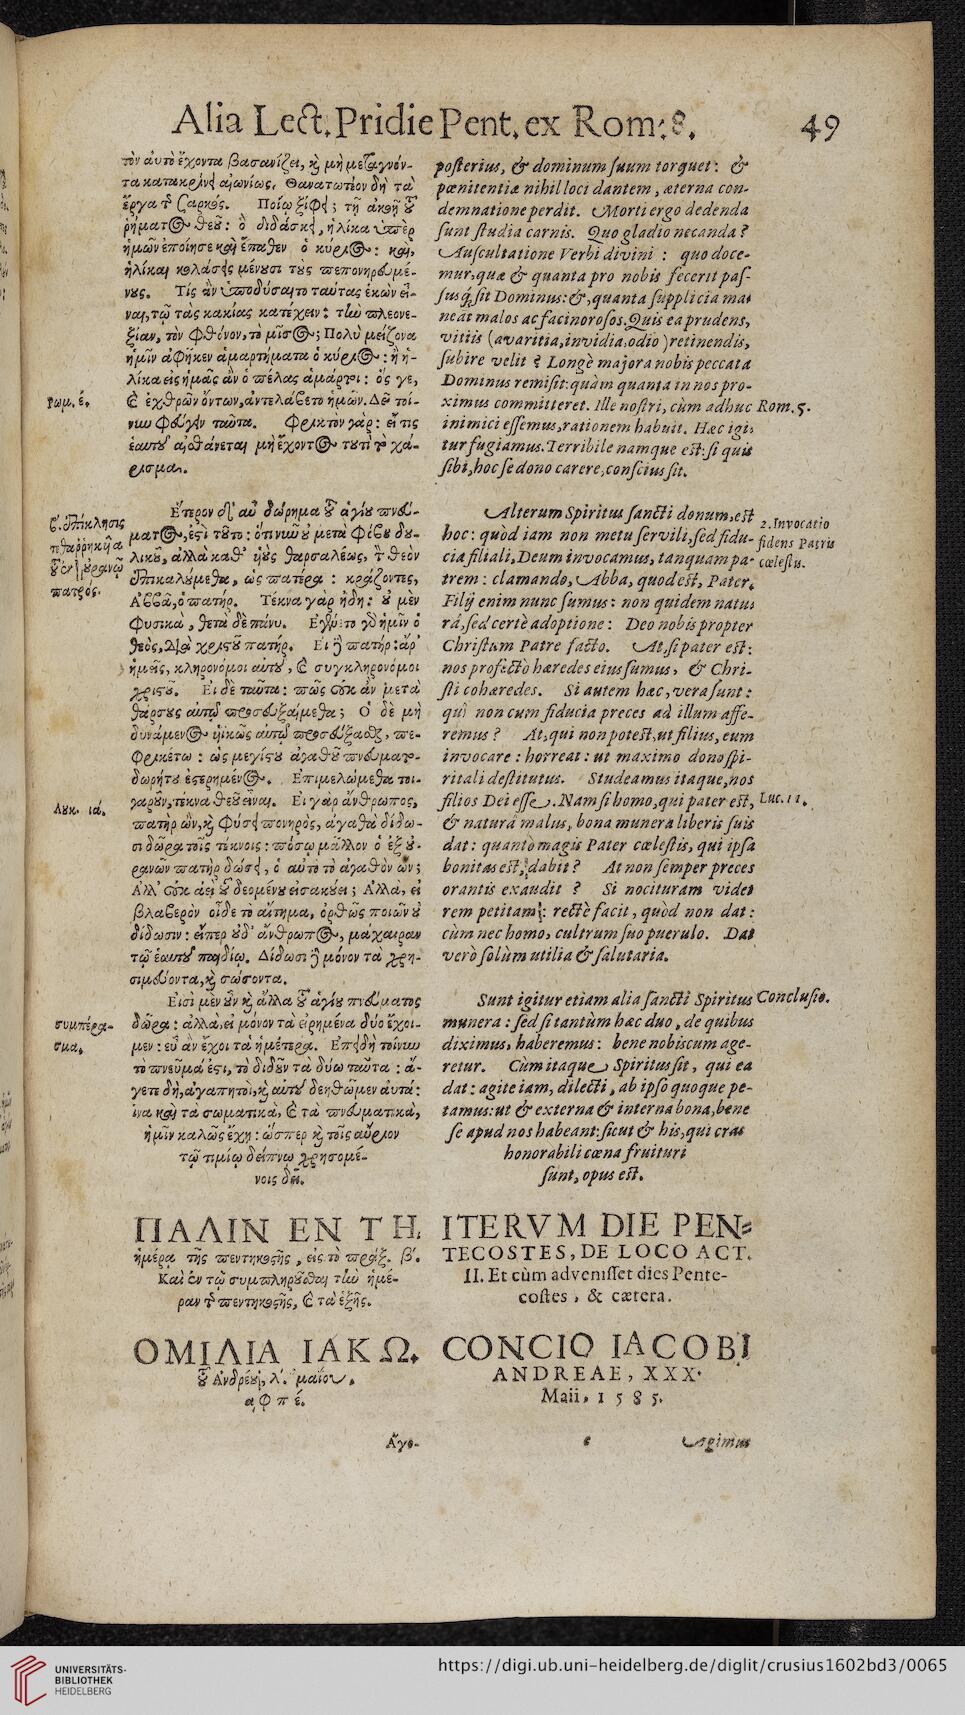 Alia Lect. Pridie Pent. ex Rom: 8. 49
τὸν αὐτὸ ἔχοντα βασανίζει, καὶ μὴ μεταγνόν-
τα κατακρίνει αἰωνίως. Θανατωτέον δὴ τὰ
ἔργα τῆς σαρκός. Ποίῳ ξίφει; τῇ ἀκοῇ τοῦ
ῥήματος θεοῦ: ὃ διδάσκει, ἡλίκα ὑπὲρ
ἡμῶν ἐποίησε καὶ ἔπαθεν ὁ κύριος: καὶ,
ἡλίκαι κολάσεις μένουσι τοὺς πεπονηρευμέ-
νους. Τίς ἂν ὑποδύσαιτο ταύτας ἑκὼν εἶ-
ναι, τῷ τὰς κακίας κατέχειν: τὴν πλεονε-
ξίαν, τὸν φθόνον, τὸ μῖσος; Πολὺ μείζονα
ἡμῖν ἀφῆκεν ἁμαρτήματα ὁ κύριος: ἢ ἡ-
λίκα εἰς ἡμᾶς ἂν ὁ πέλας ἁμάρτοι: ὅς γε,
Ρωμ. έ.
καὶ ἐχθρῶν ὄντων, ἀντελάβετο ἡμῶν. Δεῦ τοί-
νυν φεύγειν ταῦτα. Φρικτὸν γὰρ: εἴ τις
ἑαυτοῦ αἰσθάνεται μὴ ἔχοντος τουτὶ τὸ χά-
ρισμα.
β. ἐπίκλησις
τεθαρρηκυῖα
τοῦ ἐν οὐρανῷ
πατρός.
Ἕτερον δ' αὖ δώρημα τοῦ ἁγίου πνεύ-
ματος, ἐστὶ τοῦτο: ὅτι νῦν οὐ μετὰ φόβου δου-
λικοῦ, ἀλλὰ καθ' υἱοὺς θαρσαλέως, τὸν θεὸν
ἐπικαλούμεθα, ὡς πατέρα: κράζοντες,
Ἀββᾶ, ὁ πατήρ. Τέκνα γὰρ ἤδη: οὐ μὲν
φυσικὰ, θετὰ δὲ πάνυ. Ἐγένετο γὰρ ἡμῖν ὁ
θεὸς, διὰ χριστοῦ πατήρ. Εἰ δὲ πατήρ: ἆρ'
ἡμεῖς, κληρονόμοι αὐτοῦ, καὶ συγκληρονόμοι
χριστοῦ. Εἰ δὲ ταῦτα: πῶς οὐκ ἂν μετὰ
θάρσους αὐτῷ προσευξαίμεθα; Ὁ δὲ μὴ
δυνάμενος υἱικῶς αὐτῷ προσεύξασθαι, πε-
φρικέτω: ὡς μεγίστου ἀγαθοῦ πνευματο-
δωρήτου ἐστερημένος. Ἐπιμελώμεθα τοι-
γαροῦν, τέκνα θεοῦ εἶναι. Εἰ γὰρ ἄνθρωπος,
Λουκ. ιά.
πατὴρ ὢν, καὶ φύσει πονηρὸς, ἀγαθὰ δίδω-
σι δῶρα τοῖς τέκνοις: πόσῳ μᾶλλον ὁ ἐξ οὐ-
ρανῶν πατὴρ δώσει, ὁ αὐτὸ τὸ ἀγαθὸν ὤν;
Ἀλλ' οὐκ ἀεὶ τοῦ δεομένου εἰσακούει; Ἀλλὰ, εἰ
βλαβερὸν οἶδε τὸ αἴτημα, ὀρθῶς ποιῶν οὐ
δίδωσιν: εἴπερ οὐδ' ἄνθρωπος, μάχαιραν
τῷ ἑαυτοῦ παιδίῳ. Δίδωσι δὲ μόνον τὰ χρη-
σιμεύοντα, καὶ σώσοντα.
Εἰσὶ μὲν οὖν καὶ ἄλλα τοῦ ἁγίου πνεύματος
συμπέρα-
σμα.
δῶρα: ἀλλὰ, εἰ μόνον τὰ εἰρημένα δύο ἔχοι-
μεν: εὖ ἂν ἔχοι τὰ ἡμέτερα. Ἐπεὶ δὴ τοίνυν
τὸ πνεῦμά ἐστι, τὸ διδοῦν τὰ δύω ταῦτα: ἄ-
γετε δὴ, ἀγαπητοὶ, καὶ αὐτοῦ δεηθῶμεν αὐτά:
ἵνα καὶ τὰ σωματικὰ, καὶ τὰ πνευματικὰ,
ἡμῖν καλῶς ἔχῃ: ὥσπερ καὶ τοῖς αὔριον
τῷ τιμίῳ δείπνῳ χρησομέ-
νοις δεῖ.
ΠΑΛΙΝ ΕΝ ΤΗ͂
ἡμέρᾳ τῆς πεντηκοστῆς, εἰς τὸ πράξ. β'.
Καὶ ἐν τῷ συμπληροῦσθαι τὴν ἡμέ-
ραν τῆς πεντηκοστῆς, καὶ τὰ ἑξῆς.
ΟΜΙΛΙΑ ΙΑΚΩ.
τοῦ Ἀνδρέου, λ'. μαΐου,
αφπέ.
Ἄγο-
posterius, & dominum suum torquet: &
pœnitentiæ nihil loci dantem, æterna con-
demnatione perdit. Morti ergo dedenda
sunt studia carnis. Quo gladio necanda?
Auscultatione Verbi divini: quo doce-
mur, quæ & quanta pro nobis fecerit pas-
susq́ sit Dominus: &, quanta supplicia ma-
neāt malos ac facinorosos. Quis ea prudens,
vitiis (avaritia, invidia, odio) retinendis,
subire velit? Longè majora nobis peccata
Dominus remisit: quàm quanta in nos pro-
ximus committeret. Ille nostri, cùm adhuc Rom. 5.
inimici essemus, rationem habuit. Hæc igi-
tur fugiamus. Terribile namque est: si quis
sibi, hoc se dono carere, conscius sit.
Alterum Spiritus sancti donum, est
2. Invocatio
fidens Patris
cœlestis.
hoc: quòd iam non metu servili, sed fidu-
cia filiali, Deum invocamus, tanquam pa-
trem: clamando, Abba, quod est, Pater.
Filij enim nunc sumus: non quidem natu-
râ, sed certè adoptione: Deo nobis propter
Christum Patre facto. At, si pater est:
nos profectò hæredes eius sumus, & Chri-
sti cohæredes. Si autem hæc, vera sunt:
quî non cum fiducia preces ad illum affe-
remus? At, qui non potest, ut filius, eum
invocare: horreat: ut maximo dono spi-
ritali destitutus. Studeamus itaque, nos
filios Dei esse. Nam si homo, qui pater est, Luc. 11.
& naturâ malus, bona munera liberis suis
dat: quantò magis Pater cœlestis, qui ipsa
bonitas est, dabit? At non semper preces
orantis exaudit? Si nocituram videt
rem petitam: rectè facit, quòd non dat:
cùm nec homo, cultrum suo puerulo. Dat
verò solùm utilia & salutaria.
Sunt igitur etiam alia sancti Spiritus Conclusio.
munera: sed si tantùm hæc duo, de quibus
diximus, haberemus: bene nobiscum age-
retur. Cùm itaque, Spiritus sit, qui ea
dat: agite iam, dilecti, ab ipso quoque pe-
tamus: ut & externa & interna bona, bene
se apud nos habeant: sicut & his, qui cras
honorabili cœna fruituri
sunt, opus est.
ITERVM DIE PEN-
TECOSTES, DE LOCO ACT.
II. Et cùm advenisset dies Pente-
costes, & cætera.
CONCIO IACOBI
ANDREAE, XXX.
Maii, 1585.
Agimus
UNIVERSITÄTS-
BIBLIOTHEK
HEIDELBERG
https://digi.ub.uni-heidelberg.de/diglit/crusius1602bd3/0065